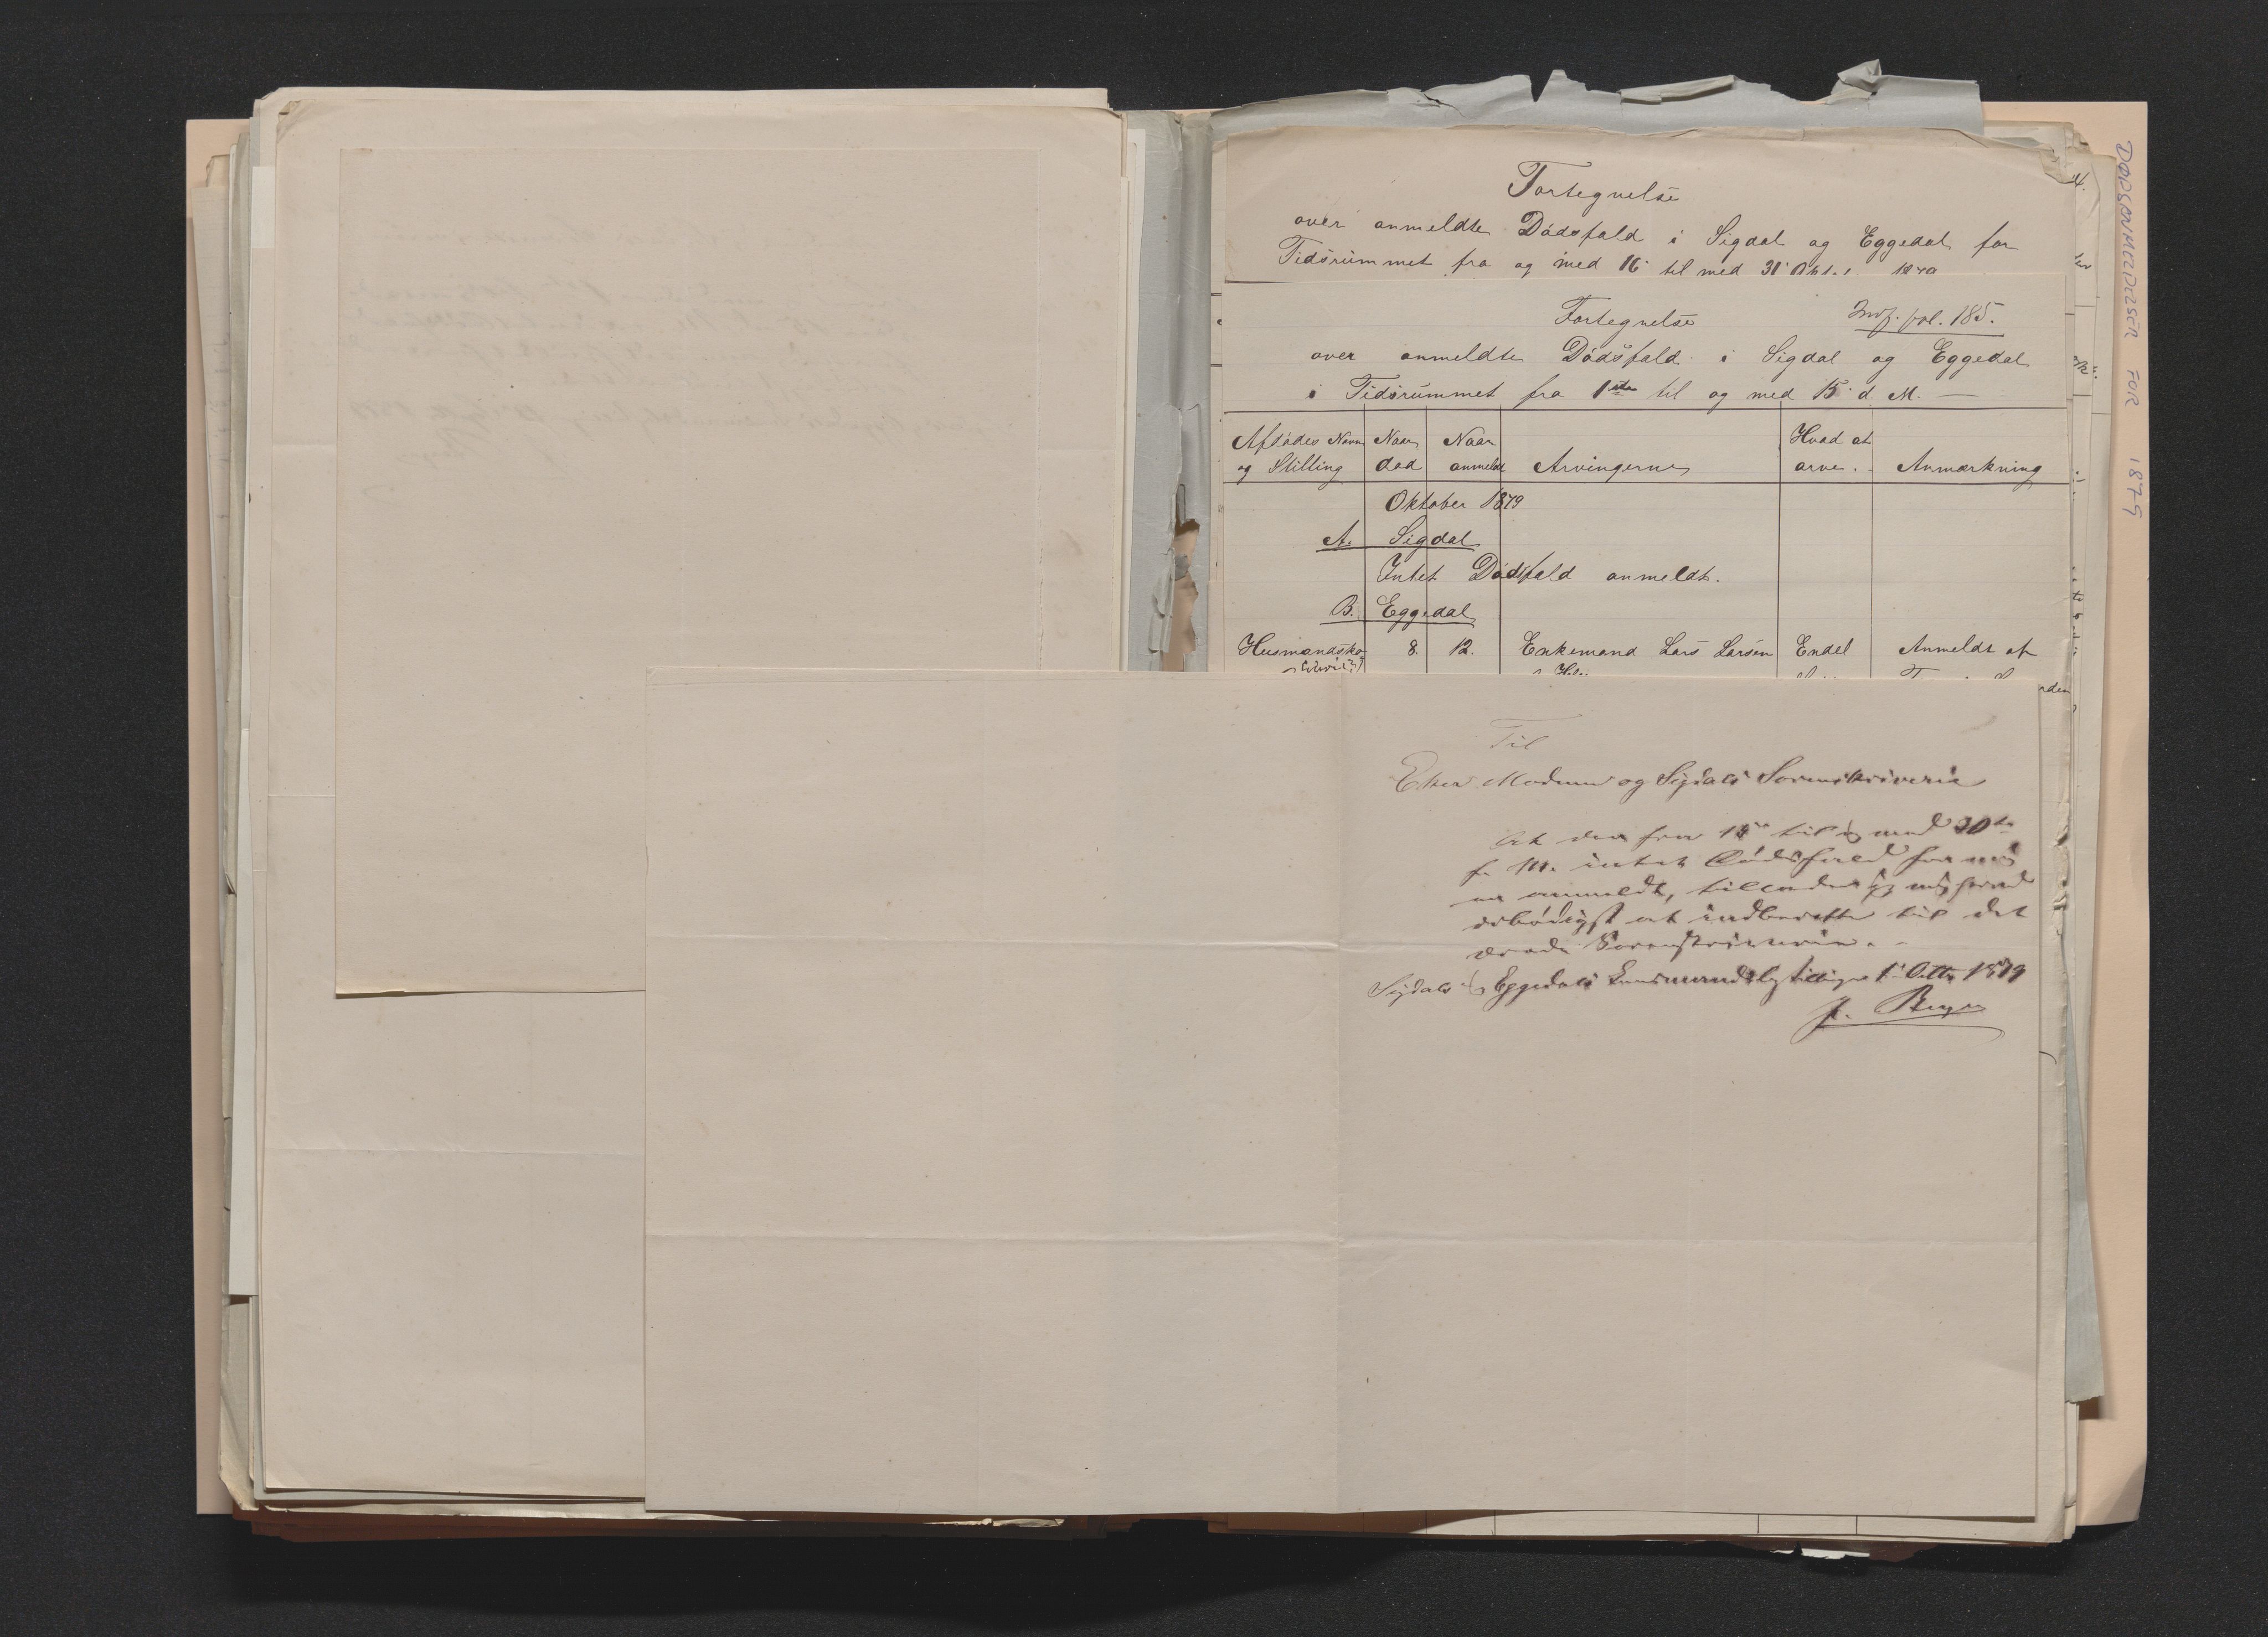 Fortegnelse
over anmeldte Dødsfald i Sigdal og Eggedal for
Tidsrummet fra og med 16' til med 31' Oktr.
Fortegnelse
fol. 185.
over anmeldte Dødsfald i Sigdal og Eggedal
i Tidsrummet fra 1ste til og med 15' d. M. —
Afdødes Navn og Stilling
Naar død
Naar anmeldt
Arvingerne
Hvad at arve.
Anmærkning
Oktober 1879
A. Sigdal
Intet Dødsfald anmeldt.
B. Eggedal
Husmandsko- 8. 12. Enkemand Lars Larsen Endel Anmeldt af
Til
Eker Modum og Sigdals Sorenskriveri
At der fra 15de til og med 30te
f. M. intet Dødsfald for mig
er anmeldt, undlader jeg
ærbødigst at indberette til det
ærede Sorenskriveri. -
Sigdals og Eggedals Lensmandsbestilling 1' Oktbr 1879
DØDSANMELDELSER FOR 1879